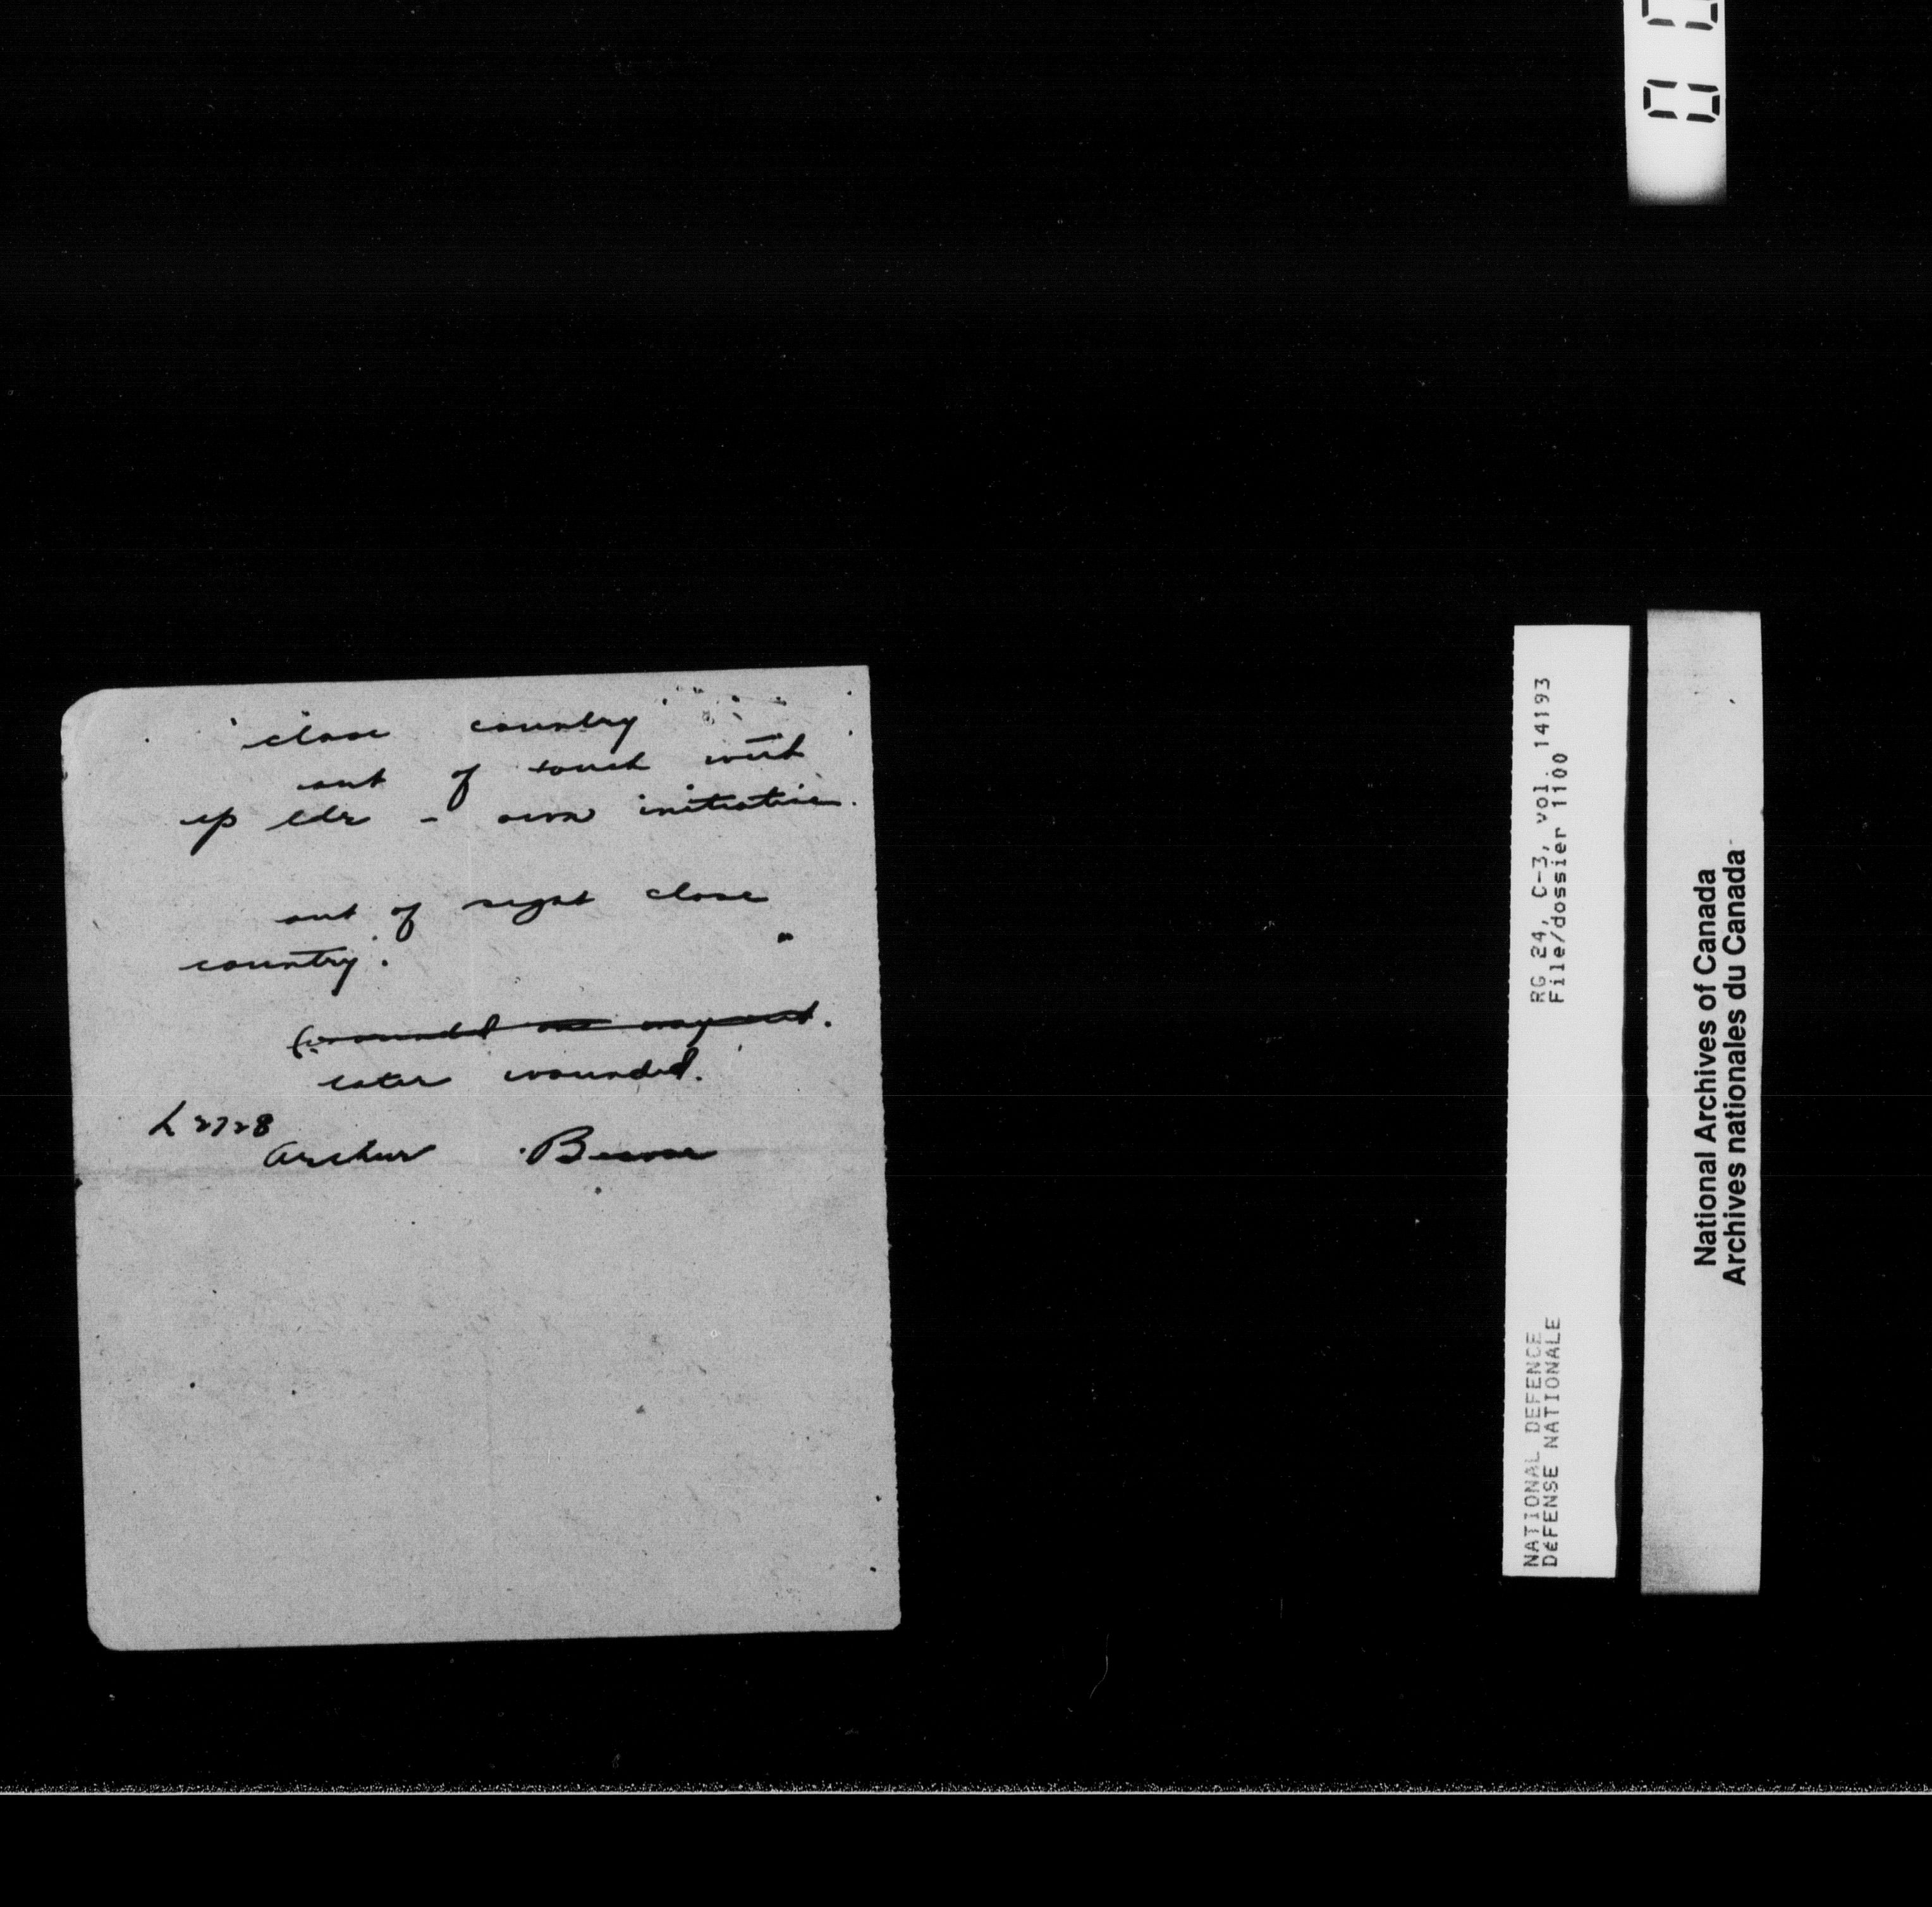 close country
out of touch with
up ldr - own initiative.
out of sight close
country.
later wounded.
L2728
Archer
RG 24, C-3, vol. 14193
File/dossier 1100
NATIONAL DEFENCE
DÉFENSE NATIONALE
National Archives of Canada
Archives nationales du Canada